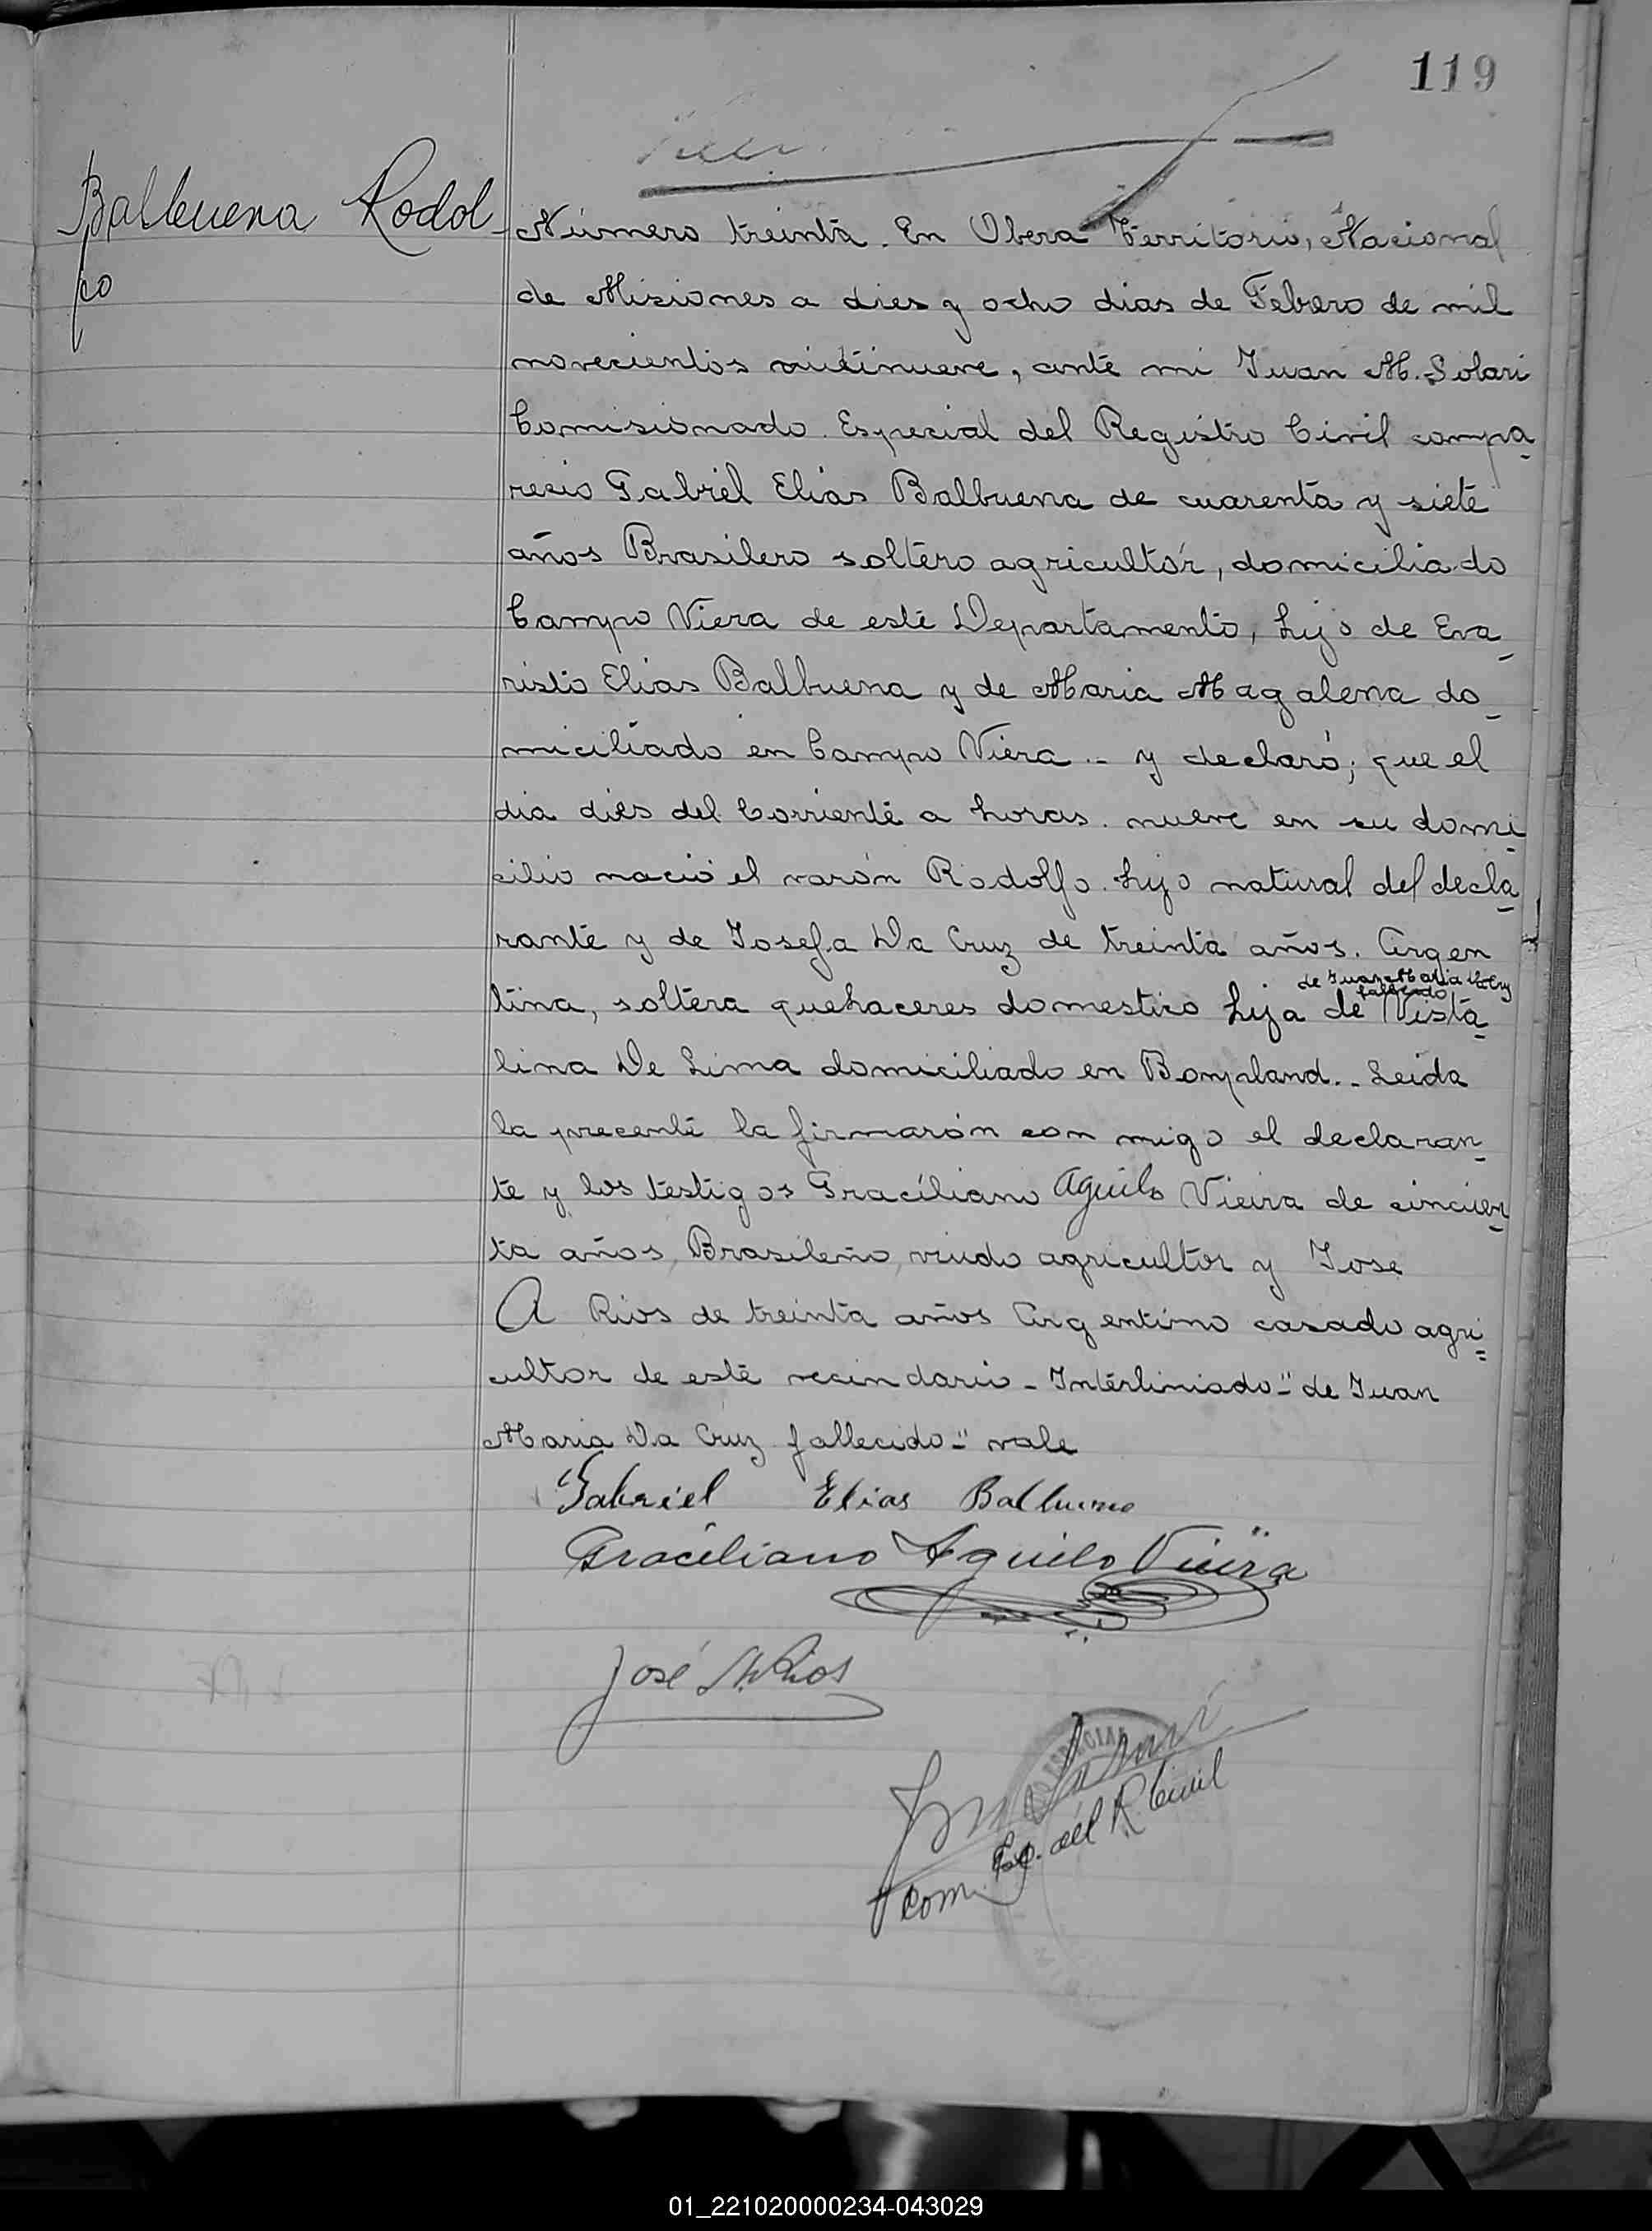 119
Balbuena Rodol-
fo
Número treinta. En Obera Territorio, Nacional
de Misiones a dies y ocho dias de Febrero de mil
novecientos veintinueve, ante mi Juan M. Solari
Comisionado Especial del Registro Civil compa-
recio Gabriel Elias Balbuena de cuarenta y siete
años Brasilero soltero agricultór, domiciliado
Campo Viera de este Departamento, hijo de Eva-
risto Elias Balbuena y de Maria Magalena do-
miciliado en Campo Viera.- y declaró; que el
dia dies del Corriente a horas nueve en su domi-
cilio nació el varón Rodolfo. hijo natural del decla-
rante y de Josefa Da Cruz de treinta años. Argen
de Juan Maria Da Cruz
fallecido
tina, soltera quehaceres domestico hija de Vista-
lina De Lima domiciliado en Bompland.- Leida
la precente la firmarón con migo el declaran-
te y los testigos Graciliano Aguilo Vieira de cincuen-
ta años, Brasileño, viudo agricultor y Jose
A Rios de treinta años Argentino casado agri=
cultor de este vecindario - Interliniado-" de Juan
Maria Da Cruz fallecido-" vale
Gabriel Elias Balbueno
Graciliano Aguilo Vieira
José A. Rios
Com. Esp. del R. Civil
01_221020000234-043029